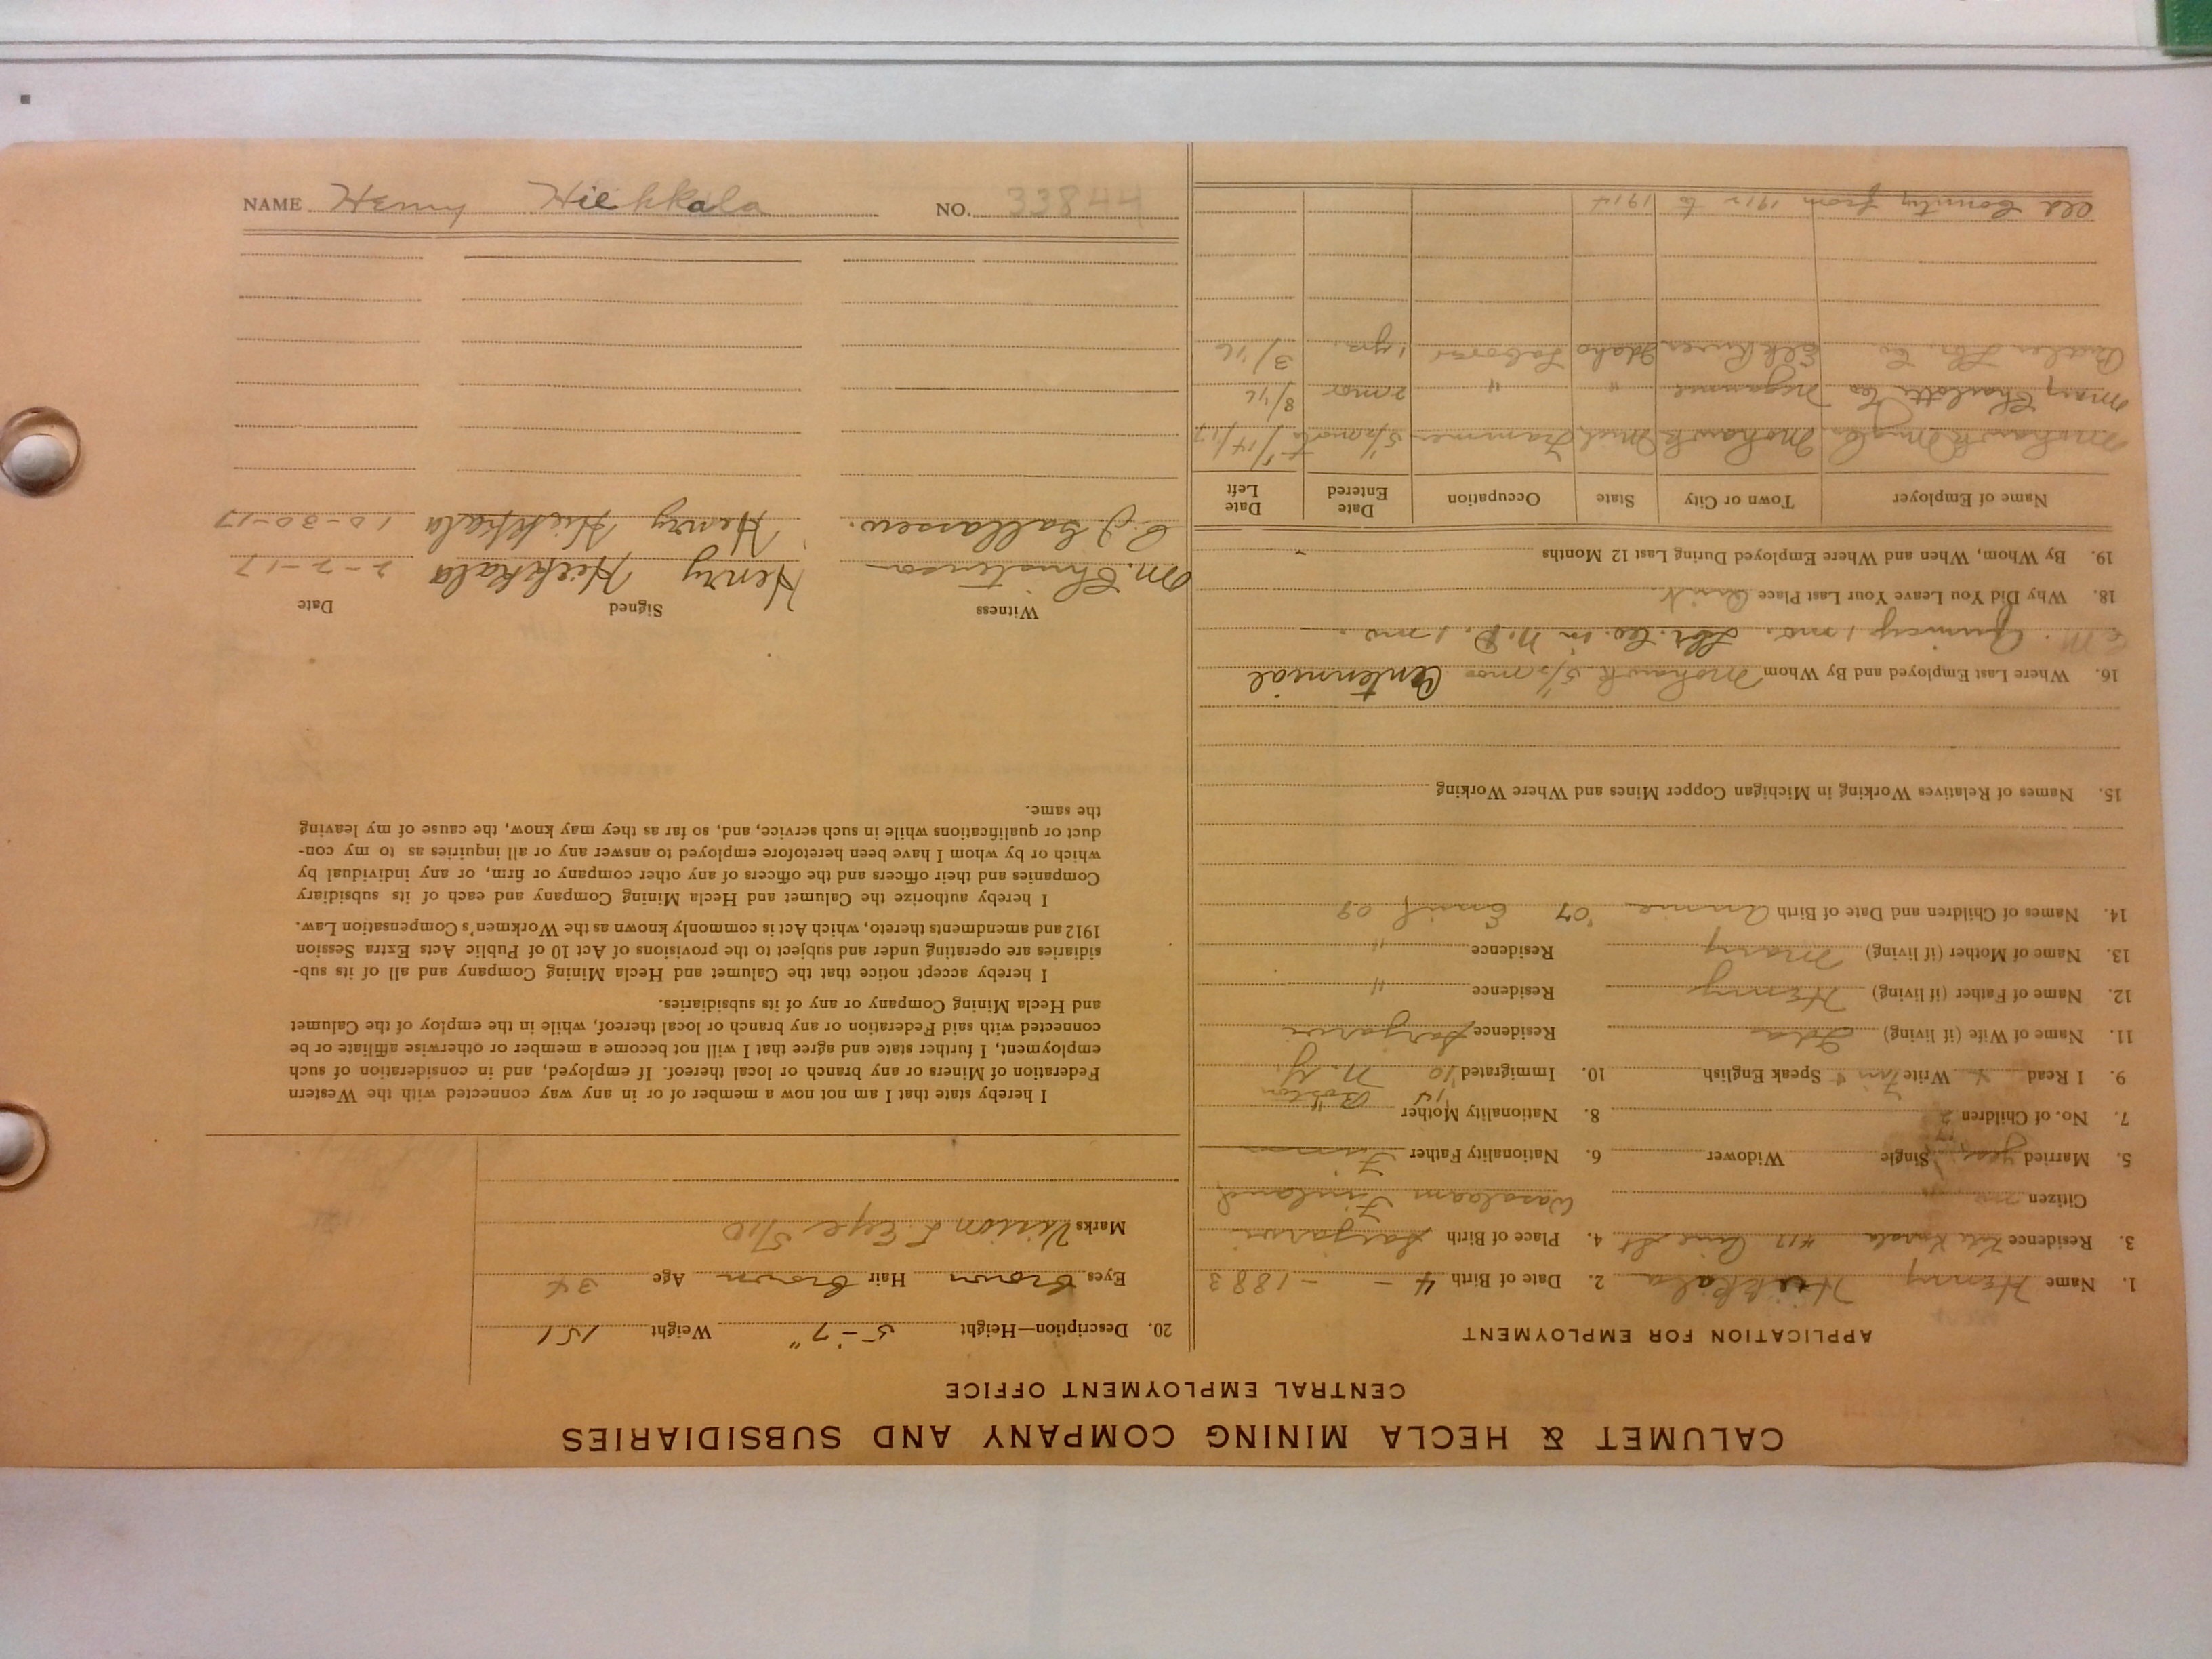 CALUMET & HECLA MINING COMPANY AND SUBSIDIARIES
CENTRAL EMPLOYMENT OFFICE
APPLICATION FOR EMPLOYMENT
1. Name Henry Hiekkala 2. Date of Birth 4 - - 1883
3. Residence #17 St 4. Place of Birth
Citizen Finland
5. Married yes Single Widower 6. Nationality Father
7. No. of Children 2 8. Nationality Mother "
'14 Boston
9. I Read Write Finn Speak English 10. Immigrated '10 N. Y.
11. Name of Wife (if living) Ida Residence
12. Name of Father (if living) Henry Residence "
13. Name of Mother (if living) Mary Residence "
14. Names of Children and Date of Birth Annie '07 Emil 09
15. Names of Relatives Working in Michigan Copper Mines and Where Working
16. Where Last Employed and By Whom Mohawk 5½ mos Centennial
Quincy 1 mo. Lbr. Co. in N. D. 1 mo.
18. Why Did You Leave Your Last Place Quit
19. By Whom, When and Where Employed During Last 12 Months
Name of Employer Town or City State Occupation Date Entered Date Left
Mohawk Mng Co. Mohawk Mich Trammer 5½ months 1/14/17
Mary Charlotte Co Negaunee " " 2 mos 8/16
Lbr. Co. Elk River Idaho Laborer 1 yr. 3/16
Old Country from 1912 to 1914
20. Description—Height 5-7" Weight 151
Eyes Brown Hair Brown Age 34
Marks Vision L Eye 5/10
I hereby state that I am not now a member of or in any way connected with the Western
Federation of Miners or any branch or local thereof. If employed, and in consideration of such
employment, I further state and agree that I will not become a member or otherwise affiliate or be
connected with said Federation or any branch or local thereof, while in the employ of the Calumet
and Hecla Mining Company or any of its subsidiaries.
I hereby accept notice that the Calumet and Hecla Mining Company and all of its sub-
sidiaries are operating under and subject to the provisions of Act 10 of Public Acts Extra Session
1912 and amendments thereto, which Act is commonly known as the Workmen's Compensation Law.
I hereby authorize the Calumet and Hecla Mining Company and each of its subsidiary
Companies and their officers and the officers of any other company or firm, or any individual by
which or by whom I have been heretofore employed to answer any or all inquiries as to my con-
duct or qualifications while in such service, and, so far as they may know, the cause of my leaving
the same.
Witness Signed Date
M. Christenson Henry Hiekkala 2-2-17
Henry Hiekkala 10-30-17
NAME Henry Hiekkala NO. 33844